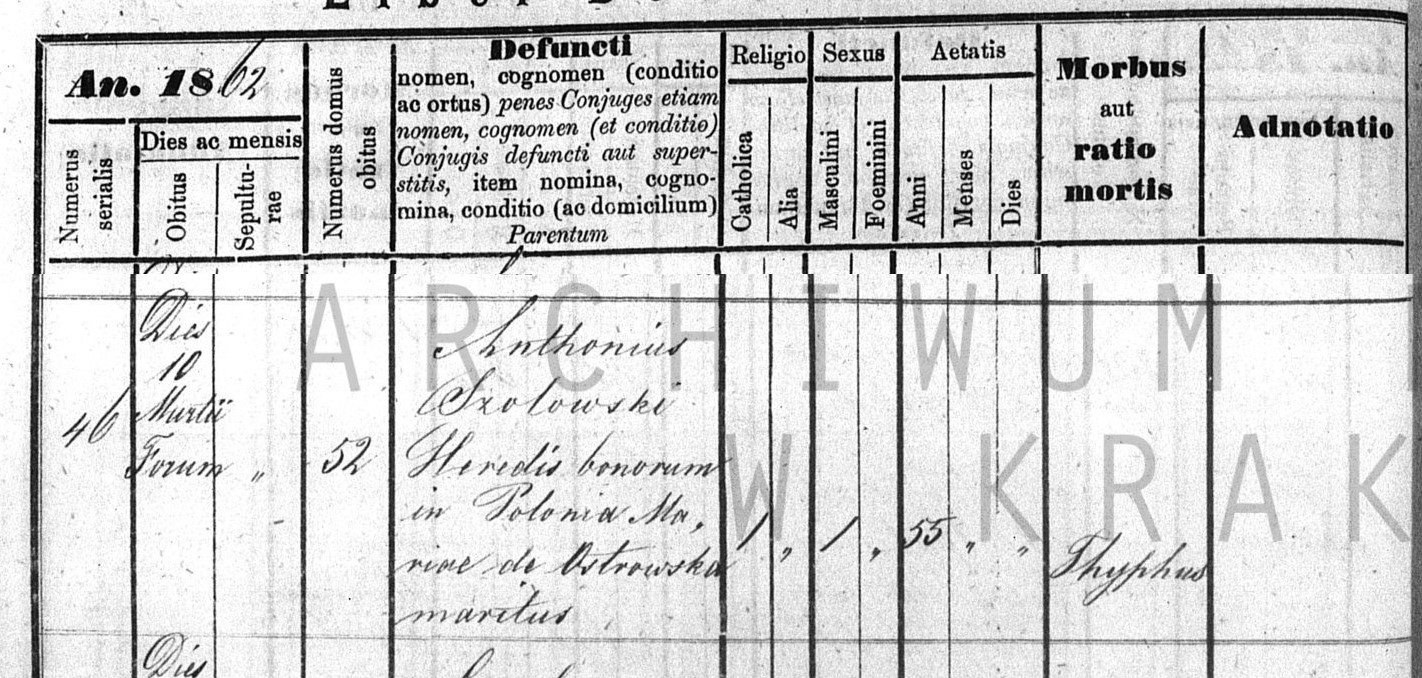 An. 1862
Numerus serialis
Dies ac mensis
Obitus
Sepulturae
Numerus domus obitus
Defuncti
nomen, cognomen (conditio
ac ortus) penes Conjuges etiam
nomen, cognomen (et conditio)
Conjugis defuncti aut super-
stitis, item nomina, cogno-
mina, conditio (ac domicilium)
Parentum
Religio
Catholica
Alia
Sexus
Masculini
Foeminini
Aetatis
Anni
Menses
Dies
Morbus
aut
ratio
mortis
Adnotatio
46
Dies
10
Martii
Forum
"
52
Anthonius
Szolowski
Heredis bonorum
in Polonia Ma,
riae de Ostrowska
maritus
1 " 1 " 55 " "
Thyphus
Dies
ARCHIWUM
W KRAK